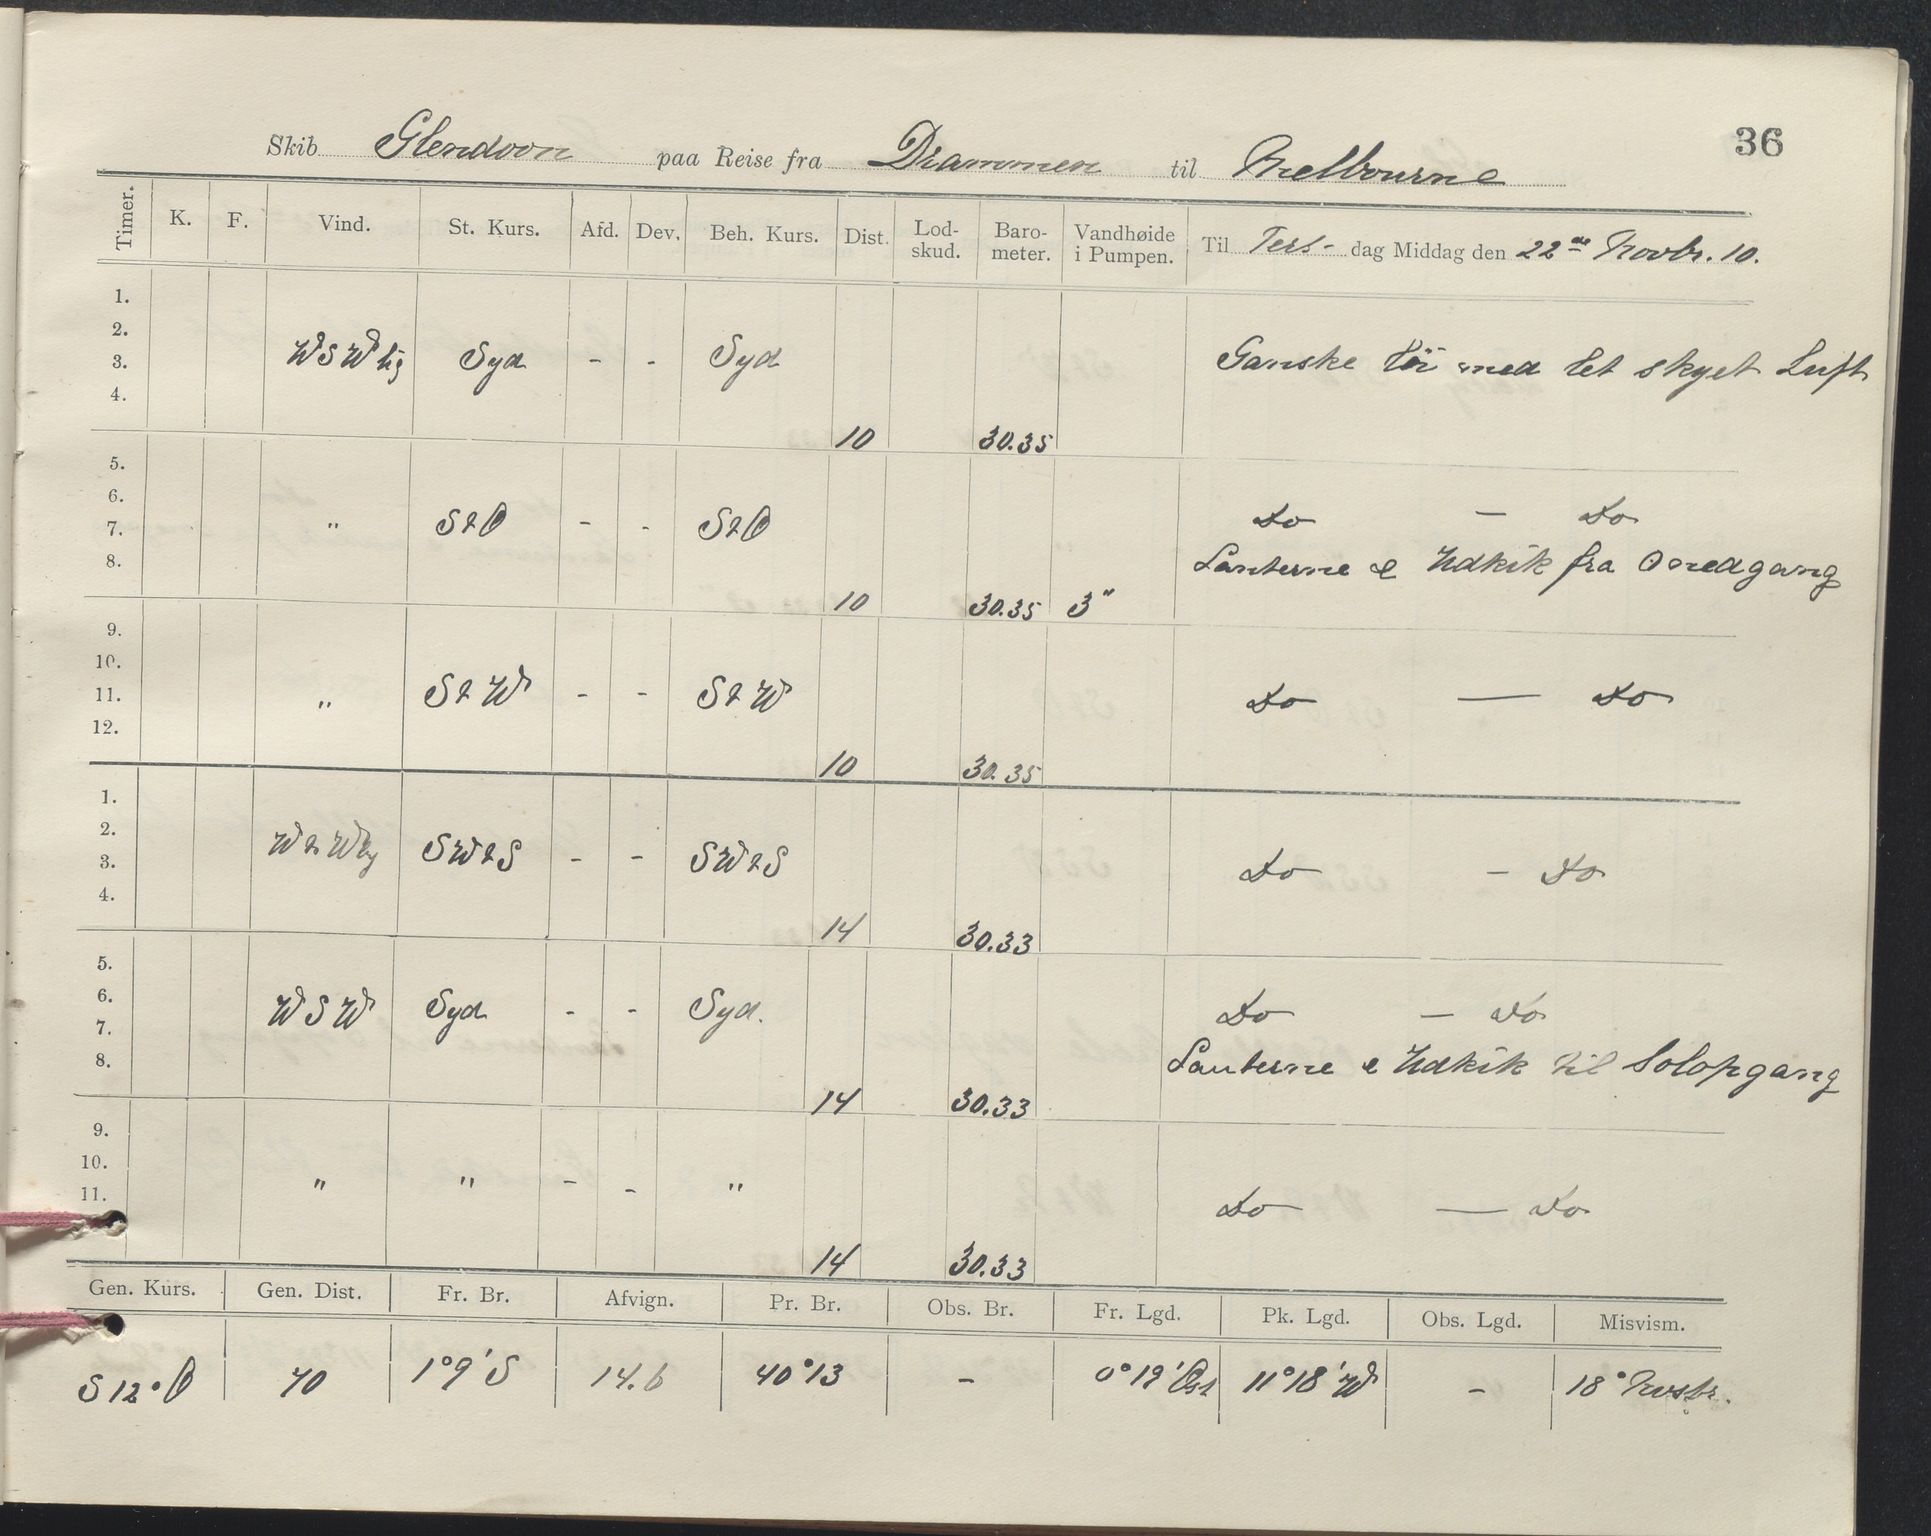 36
Skib Glendoon paa Reise fra Drammen til Melbourne
Timer. K. F. Vind. St. Kurs. Afd. Dev. Beh. Kurs. Dist. Lod-skud. Baro-meter. Vandhøide i Pumpen. Til Ters- dag Middag den 22de Novbr. 10.
1.
2.
3. WSWlig Syd - - Syd Ganske löi med let skyet Luft
4.
10 30.35
5.
6.
7. " StO - - StO Do - Do
8. Lanterne & Udkik fra Onedgang
10 30.35 3"
9.
10.
11. " StW - - StW Do — Do
12.
10 30.35
1.
2.
3. WtWlig SWtS - - SWtS Do - Do
4.
14 30.33
5.
6. WSW Syd - - Syd. Do - Do
7.
8. Lanterne & Udkik til Solopgang
14 30.33
9.
10.
11. " " - - " Do — Do
14 30.33
Gen. Kurs. Gen. Dist. Fr. Br. Afvign. Pr. Br. Obs. Br. Fr. Lgd. Pk. Lgd. Obs. Lgd. Misvism.
S 12° O 70 1°9' S 14.6 40°13 - 0°19' Ost 11°18' W - 18°